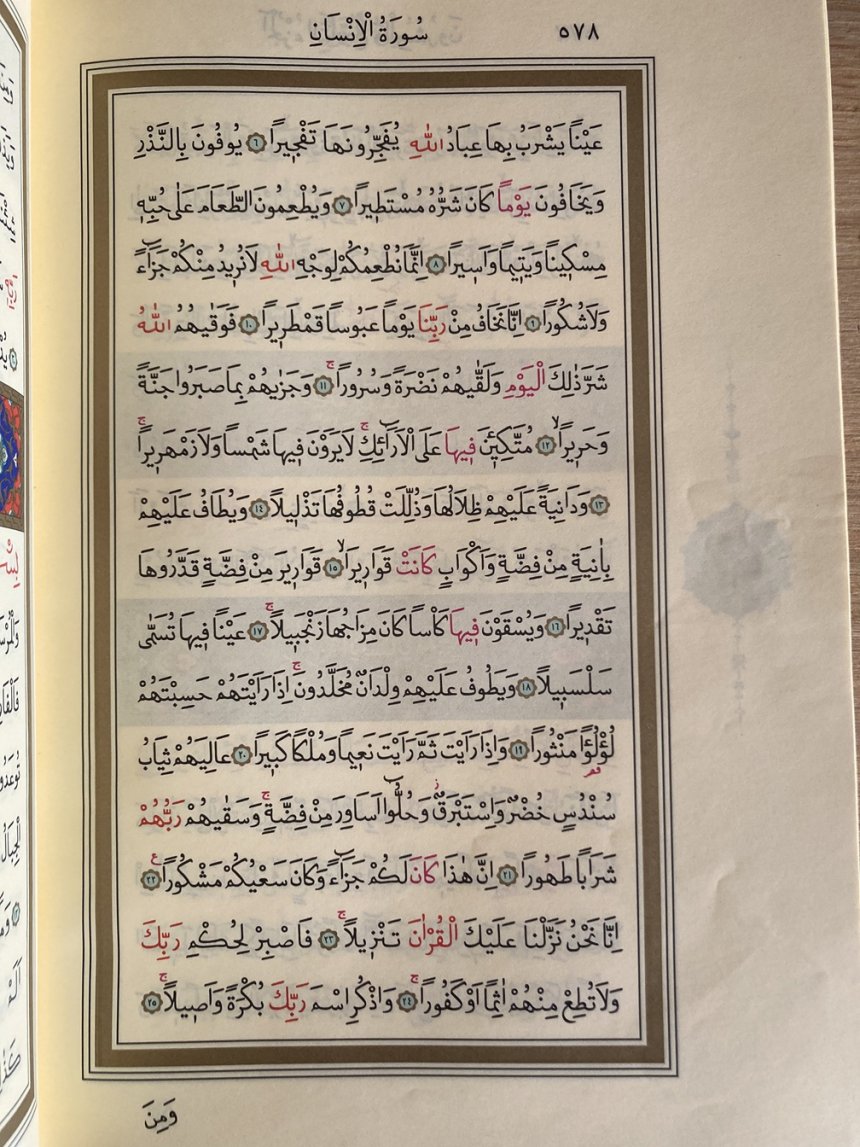 ٥٧٨
سُورَةُ الْاِنْسَانِ
عَيْنًا يَشْرَبُ بِهَا عِبَادُ اللّٰهِ يُفَجِّرُونَهَا تَفْج۪يرًا ﴿٦﴾ يُوفُونَ بِالنَّذْرِ
وَيَخَافُونَ يَوْمًا كَانَ شَرُّهُ مُسْتَط۪يرًا ﴿٧﴾ وَيُطْعِمُونَ الطَّعَامَ عَلٰى حُبِّه۪
مِسْك۪ينًا وَيَت۪يمًا وَاَس۪يرًا ﴿٨﴾ اِنَّمَا نُطْعِمُكُمْ لِوَجْهِ اللّٰهِ لَا نُر۪يدُ مِنْكُمْ جَزَٓاءً
وَلَا شُكُورًا ﴿٩﴾ اِنَّا نَخَافُ مِنْ رَبِّنَا يَوْمًا عَبُوسًا قَمْطَر۪يرًا ﴿١٠﴾ فَوَقٰيهُمُ اللّٰهُ
شَرَّ ذٰلِكَ الْيَوْمِ وَلَقّٰيهُمْ نَضْرَةً وَسُرُورًاۚ ﴿١١﴾ وَجَزٰيهُمْ بِمَا صَبَرُوا جَنَّةً
وَحَر۪يرًاۙ ﴿١٢﴾ مُتَّكِـ۪ٔينَ ف۪يهَا عَلَى الْاَرَٓائِكِۚ لَا يَرَوْنَ ف۪يهَا شَمْسًا وَلَا زَمْهَر۪يرًاۚ
﴿١٣﴾ وَدَانِيَةً عَلَيْهِمْ ظِلَالُهَا وَذُلِّلَتْ قُطُوفُهَا تَذْل۪يلًا ﴿١٤﴾ وَيُطَافُ عَلَيْهِمْ
بِاٰنِيَةٍ مِنْ فِضَّةٍ وَاَكْوَابٍ كَانَتْ قَوَار۪يرَا۬ۙ ﴿١٥﴾ قَوَار۪يرَ مِنْ فِضَّةٍ قَدَّرُوهَا
تَقْد۪يرًا ﴿١٦﴾ وَيُسْقَوْنَ ف۪يهَا كَأْسًا كَانَ مِزَاجُهَا زَنْجَب۪يلًاۚ ﴿١٧﴾ عَيْنًا ف۪يهَا تُسَمّٰى
سَلْسَب۪يلًا ﴿١٨﴾ وَيَطُوفُ عَلَيْهِمْ وِلْدَانٌ مُخَلَّدُونَۚ اِذَا رَاَيْتَهُمْ حَسِبْتَهُمْ
لُؤْلُؤًا مَنْثُورًا ﴿١٩﴾ وَاِذَا رَاَيْتَ ثَمَّ رَاَيْتَ نَع۪يمًا وَمُلْكًا كَب۪يرًا ﴿٢٠﴾ عَالِيَهُمْ ثِيَابُ
سُنْدُسٍ خُضْرٌ وَاِسْتَبْرَقٌۘ وَحُلُّٓوا اَسَاوِرَ مِنْ فِضَّةٍۚ وَسَقٰيهُمْ رَبُّهُمْ
شَرَابًا طَهُورًا ﴿٢١﴾ اِنَّ هٰذَا كَانَ لَكُمْ جَزَٓاءً وَكَانَ سَعْيُكُمْ مَشْكُورًا۟ ﴿٢٢﴾
اِنَّا نَحْنُ نَزَّلْنَا عَلَيْكَ الْقُرْاٰنَ تَنْز۪يلًاۚ ﴿٢٣﴾ فَاصْبِرْ لِحُكْمِ رَبِّكَ
وَلَا تُطِعْ مِنْهُمْ اٰثِمًا اَوْ كَفُورًاۚ ﴿٢٤﴾ وَاذْكُرِ اسْمَ رَبِّكَ بُكْرَةً وَاَص۪يلًاۚ ﴿٢٥﴾
وَمِنَ